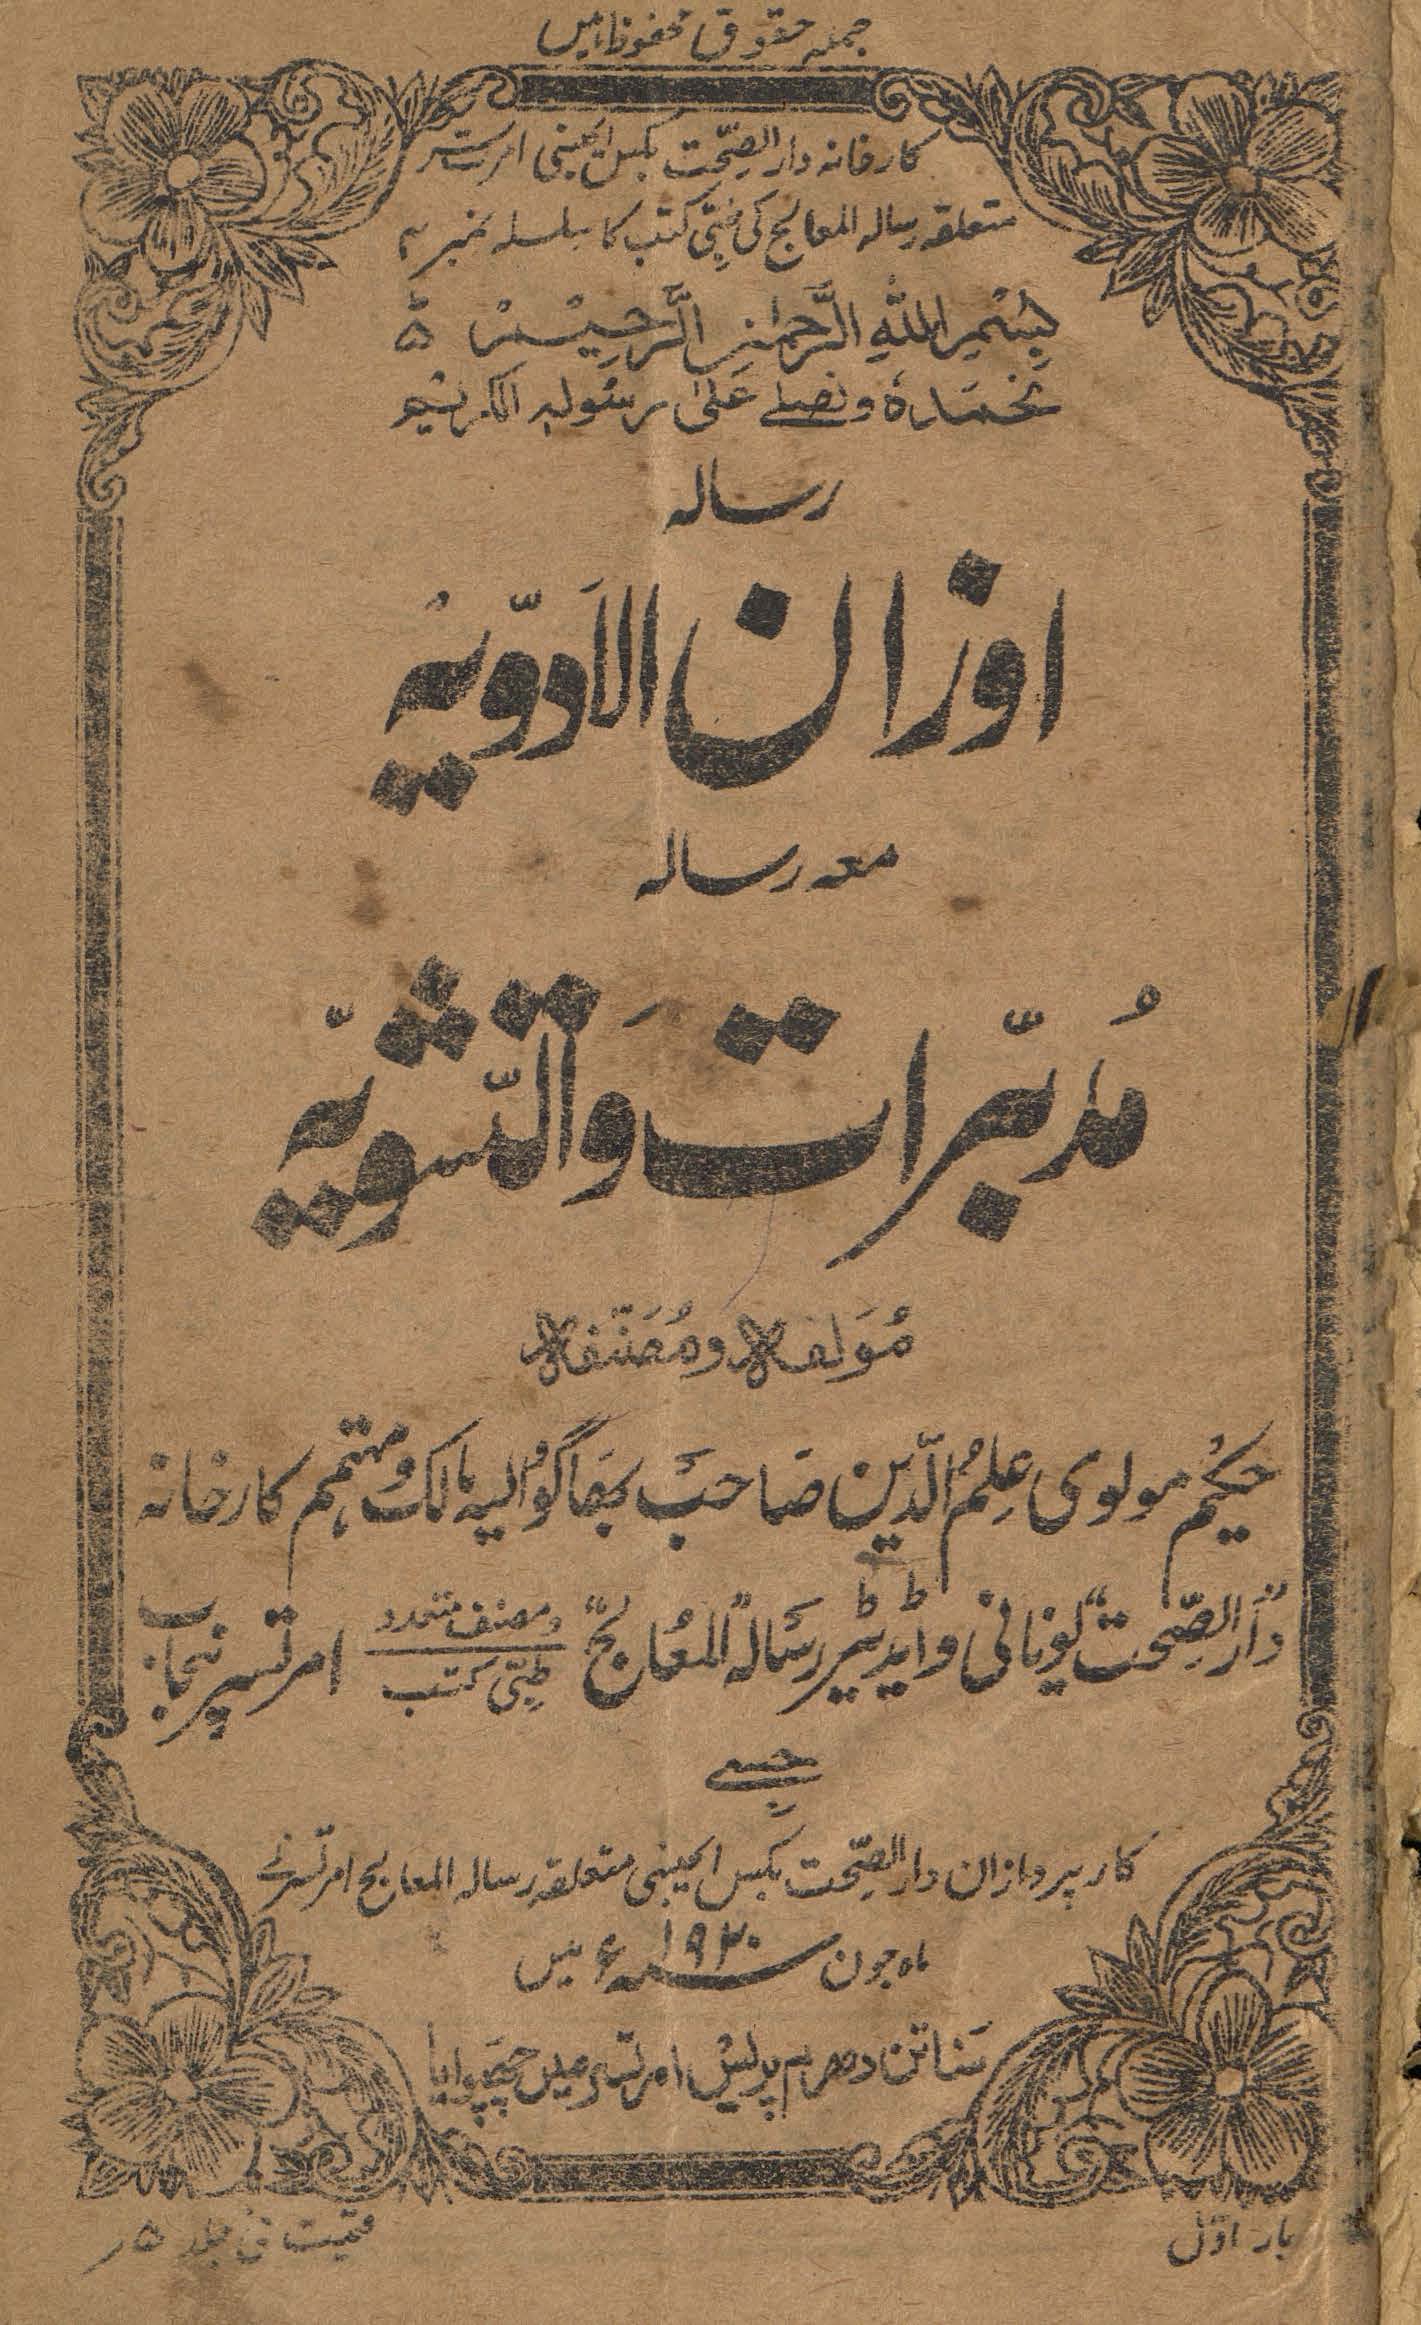 جملہ حقوق محفوظ ہیں
کارخانہ دار الصّحت بکس ایجنسی امرتسر
متعلقہ رسالہ المعالج کی طبّی کتب کا سلسلہ نمبر ۳
بِسْمِ اللّٰہِ الرَّحمٰنِ الرَّحِیْمْ ۵
نحمدہٗ و نصلے علیٰ رسُولہِ الکریم
رسالہ
اوزان الاَدوّیہْ
معہ رسالہ
مُدبّرات وَالتّشویّہ
مُوَلفہ و مُصَنّفہ
حکیم مولوی عِلمُ الدّین صَاحبَ بھَاگوُالیہ مالک و مہتمم کارخانہ
"دار الصّحت" یونانی و ایڈیٹر رسَالہ "المعالج" و مصنف متعدد طبّی کتب امرتسر پنجاب
جِسے
کارپردازان دار الصّحت بکس ایجنسی متعلقہ رسالہ المعالج امرتسر نے
ماہ جون سنہ ۱۹۲۰ء میں
سَناتن دھرم پریسْ امرتسر میں چھَپوایا
بار اوّل
قیمت فی جلد ۵؍